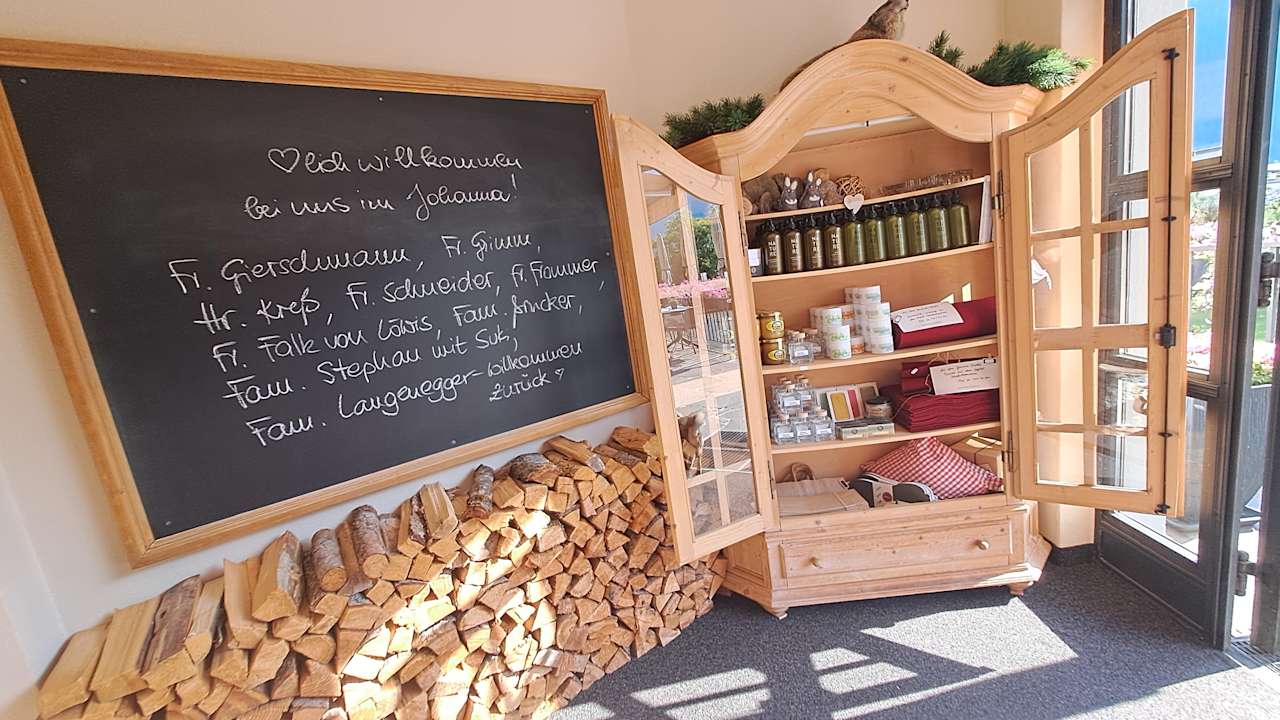 ♡lich willkommen
bei uns im Johanna!
Fr. Gierschmann, Fr. Grimm,
Hr. Kreß, Fr. Schneider, Fr. Frommer,
Fr. Falk von Löwis, Fam. Brucker,
Fam. Stephan mit Suk,
Fam. Langenegger - willkommen
zurück ♡
NATURE
NATURE
NATURE
NATURE